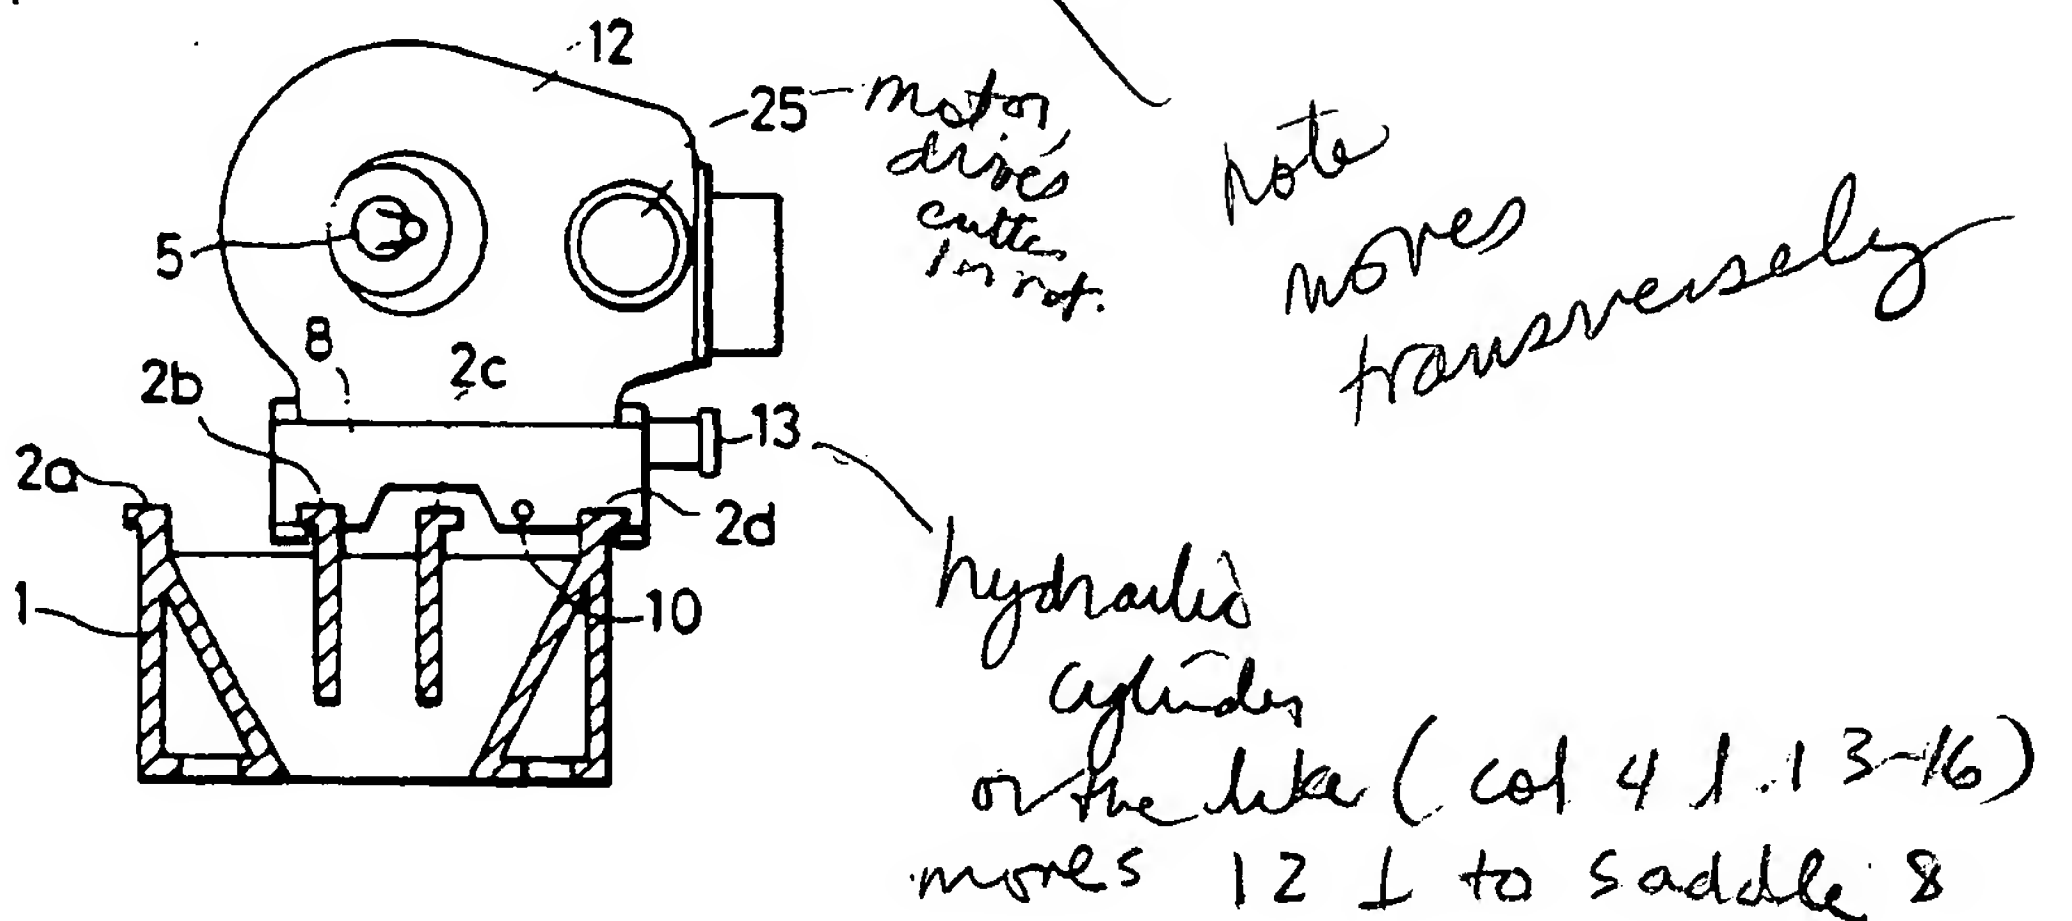 12
25 - motor,
drives
cutter
in rot.
note
moves
transversely
5
8
2b
2c
13
2a
2d
hydraulic
cylinder
or the like (col 4 l. 13-16)
moves 12 ⊥ to saddle 8
1
10